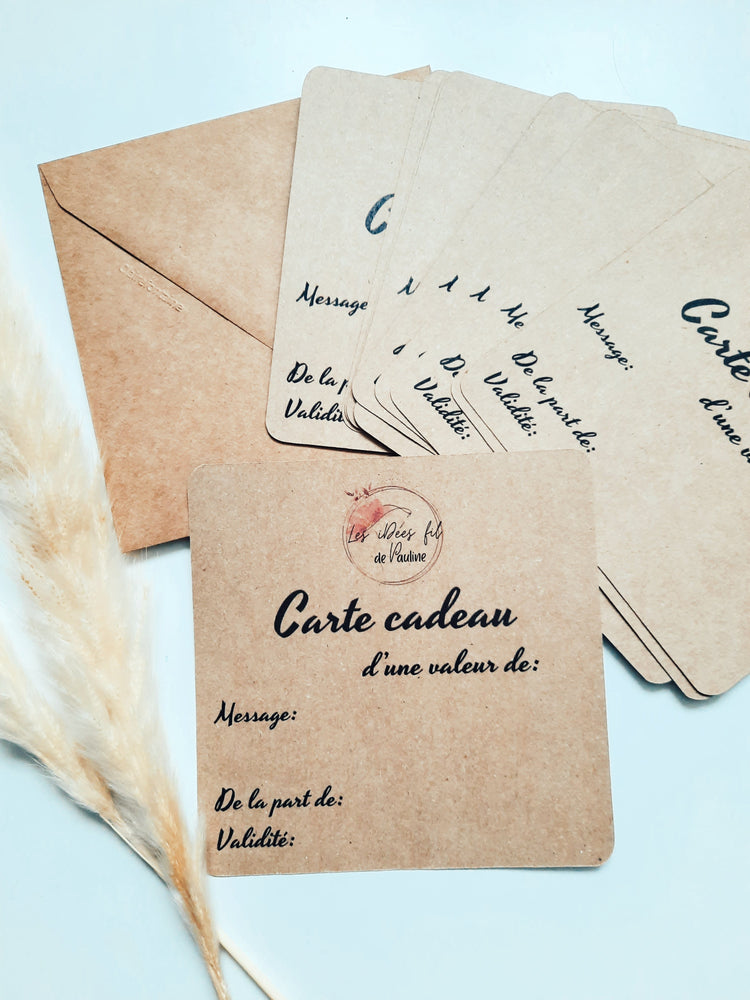 Les iDées fil
de Pauline
Carte cadeau
d'une valeur de:
Message:
De la part de:
Validité:
C
Message
De la p
Validit
Me
De
Validité:
Message:
De la part de:
Validité:
Carte
d'une v